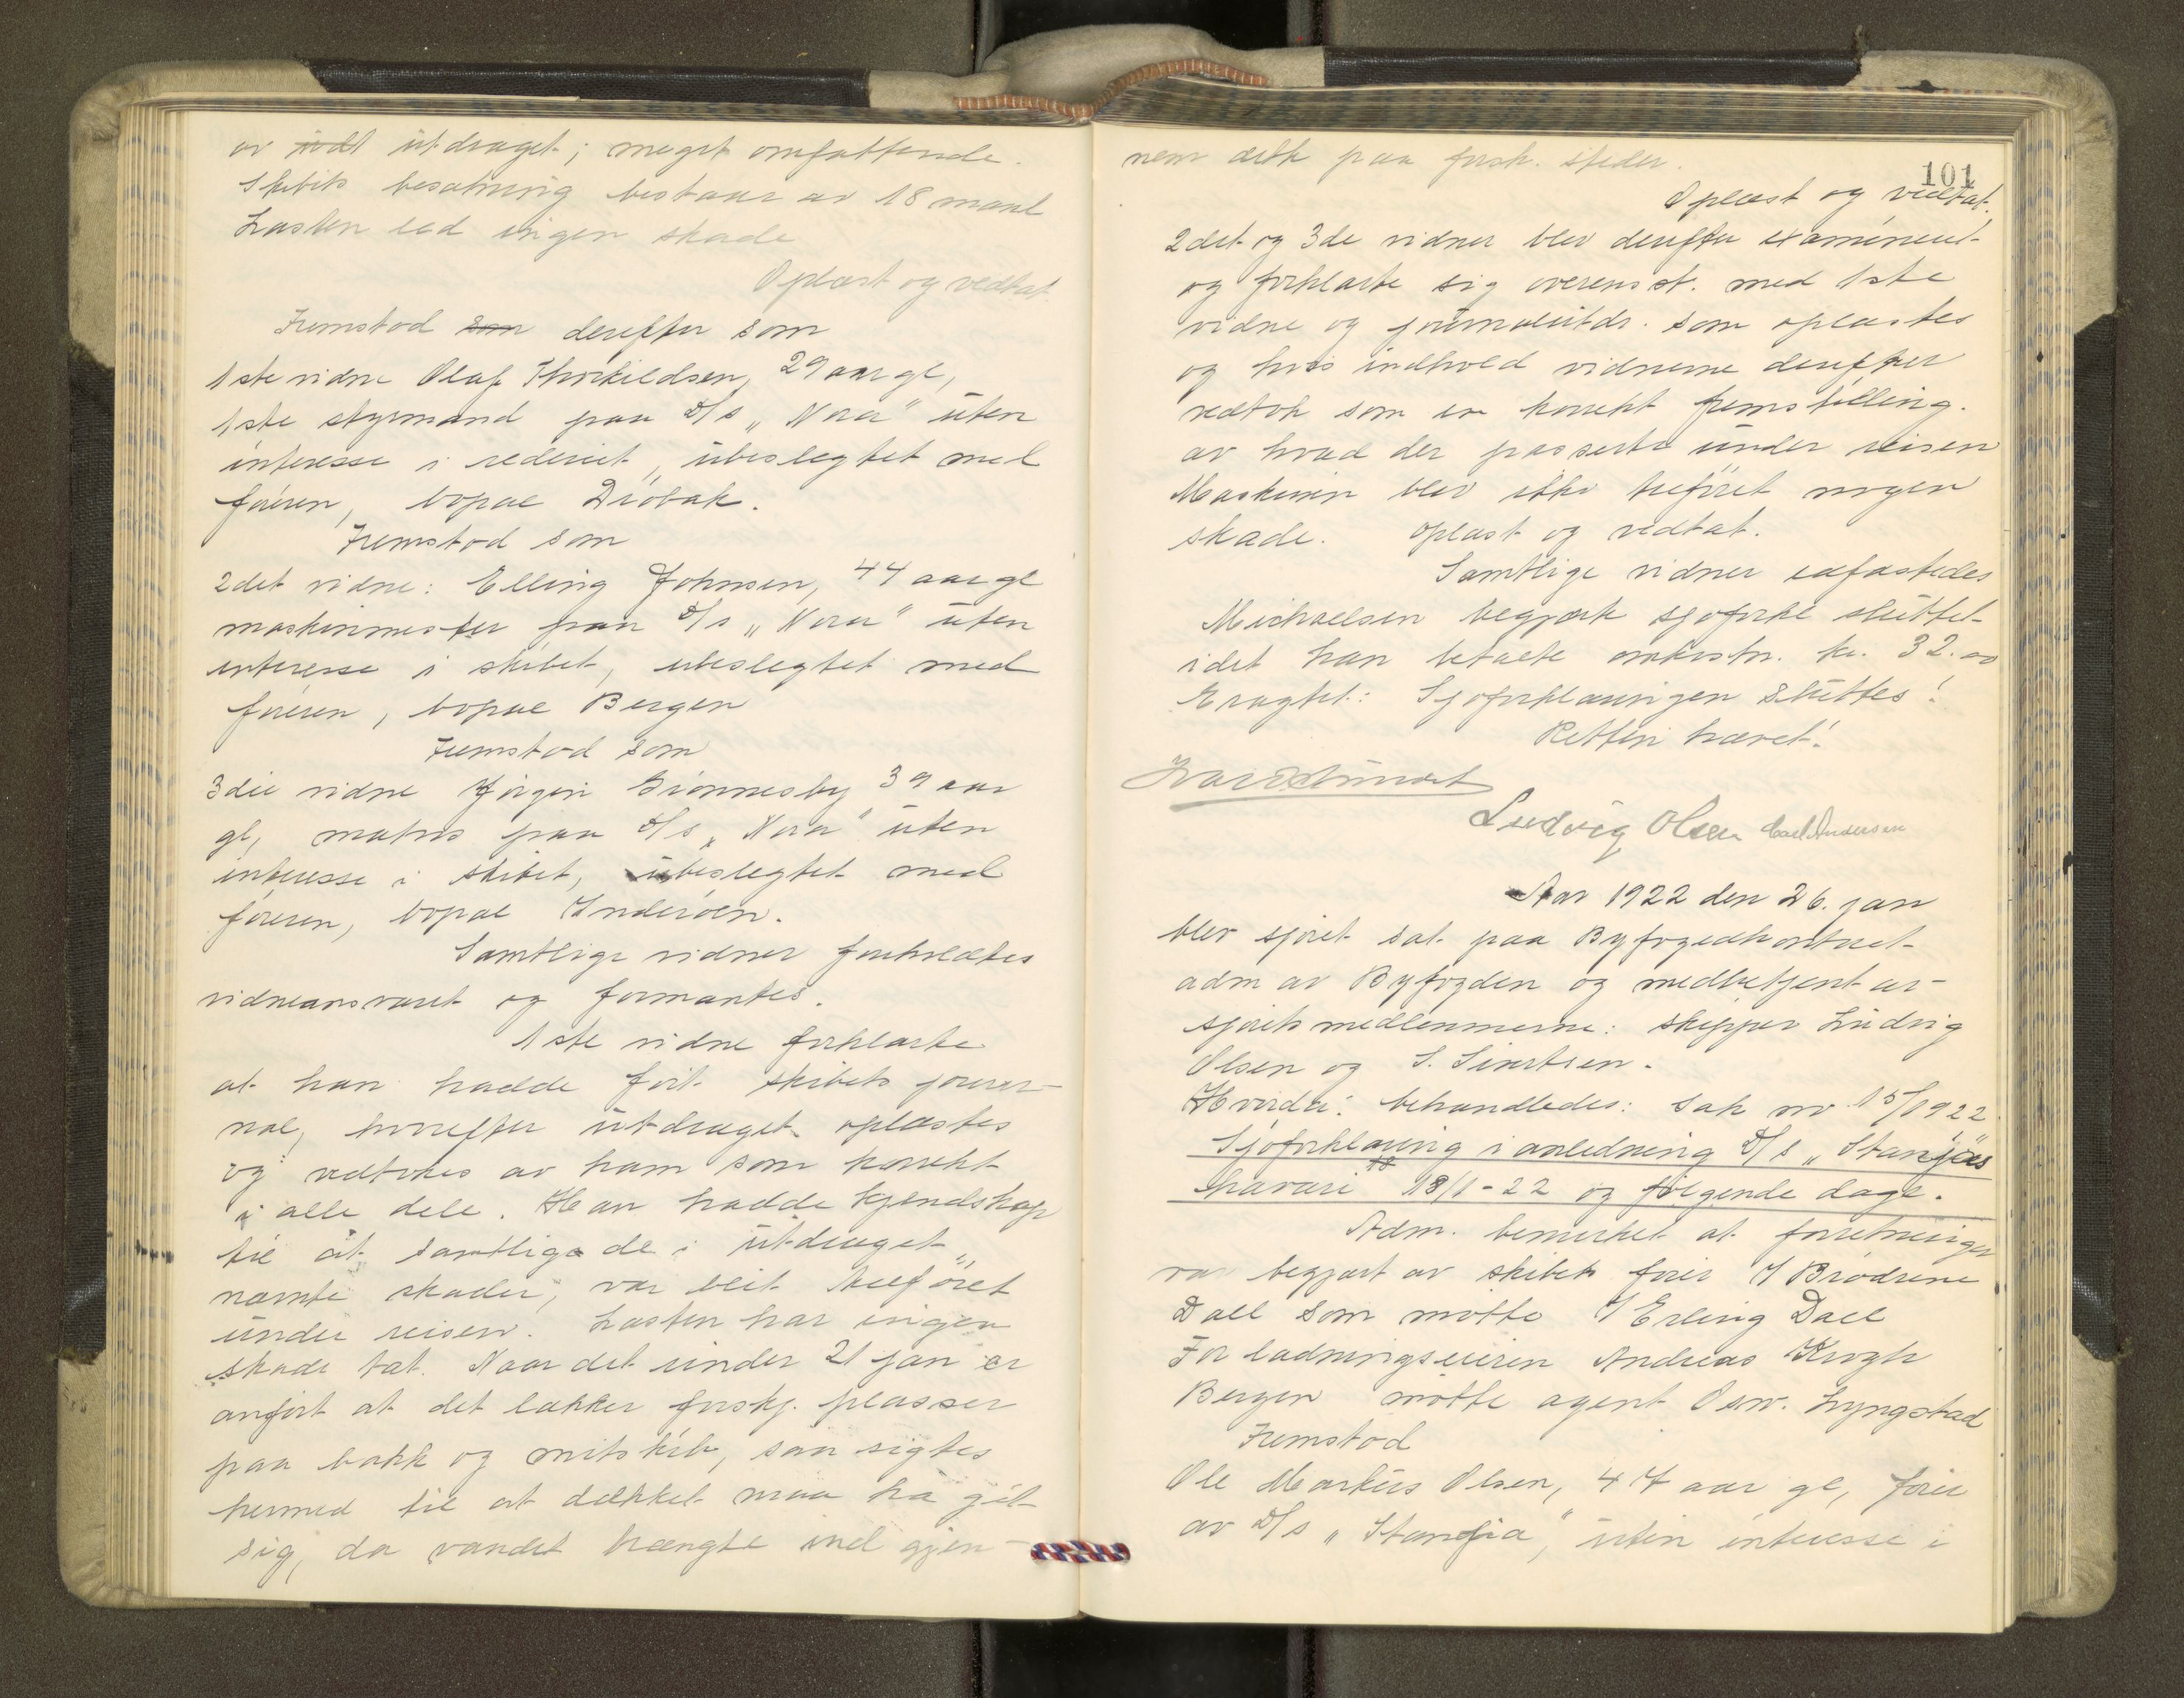 av utdraget; meget omfattende.
Skibets besætning bestaar av 18 mand
Lasten led ingen skade
Oplæst og vedtat.
Fremstod som derefter som
1ste vidne Olaf Thorkildsen, 29 aar gl,
1ste styrmand paa D/s „Nora" uten
interesse i rederiet, ubeslegtet med
føreren, bopæl Drøbak.
Fremstod som
2det vidne: Elling Johnsen, 44 aar gl
maskinmester paa D/s „Nora" uten
interesse i skibet, ubeslegtet med
føreren, bopæl Bergen
Fremstod som
3die vidne Jørgen Grønnesby 39 aar
gl, matros paa D/s „Nora" uten
interesse i skibet, ubeslegtet med
føreren, bopæl Inderøen.
Samtlige vidner foreholdtes
vidneansvaret og formantes.
1ste vidne forklarte
at han hadde ført skibets jour-
nal, hvorefter utdraget oplæstes
og vedtokes av ham som korrekt
i alle dele. Han hadde kjendskap
til at samtlige de i utdraget
nævnte skader, var blit tilføiet
under reisen. Lasten har ingen
skade tat. Naar det under 21 jan er
anført at det lækker forskj. plasser
paa bakk og mitskib, saa sigtes
hermed til at dækket maa ha git
sig, da vandet trængte ind gjen-
101
nem dette paa forsk. steder.
Oplæst og vedtat.
2det og 3de vidner blev derefter examineret
og forklarte sig overensst. med 1ste
vidne og journalutdr. som oplæstes
og hvis indhold vidnerne derefter
vedtok som en korrekt fremstilling
av hvad der passerte under reisen
Maskinen blev ikke tilføiet nogen
skade. Oplæst og vedtat.
Samtlige vidner edfæstedes
Michaelsen begjærte sjøforkl sluttet
idet han betalte omkostn. kr. 32.00
Eragtet: Sjøforklaringen sluttes!
Retten hævet!
Ludvig Olsen Carl Andersen
Aar 1922 den 26. jan
blev sjøret sat paa Byfogedkontoret
adm av Byfogden og medbetjent av
sjøretsmedlemmerne: skipper Ludvig
Olsen og S. Sivertsen.
Hvorda: behandledes: Sak nr 15/1922
Sjøforklaring i anledning D/s „Stanjas
havari 18/1-22 og følgende dage.
Adm. bemerket at forretningen
var begjært av skibets fører v/ Brødrene
Dall som møtte v/ Erling Dall
For ladningseieren Andreas Krogh
Bergen møtte agent Osw. Lyngstad
Fremstod
Ole Markus Olsen, 47 aar gl, fører
av D/s „Stanja", uten interesse i